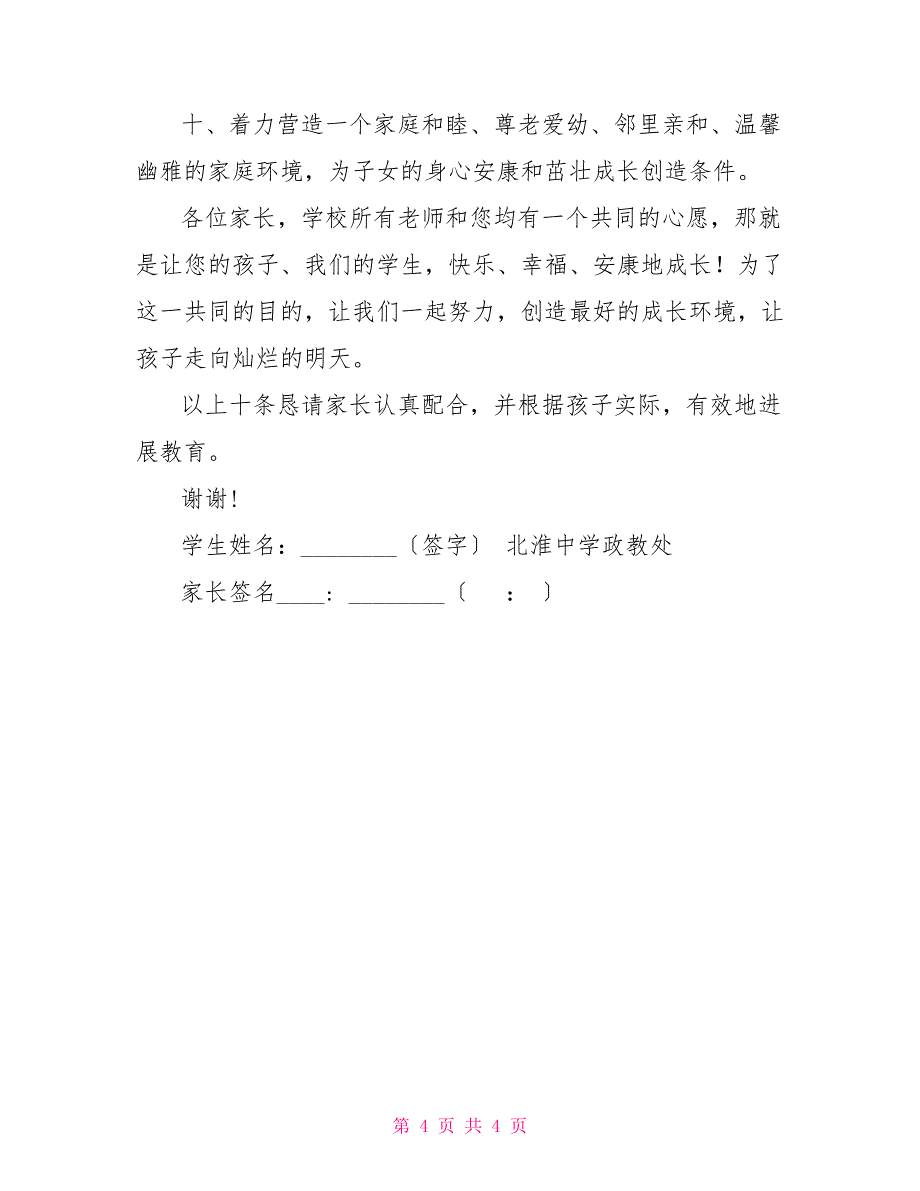 十、着力营造一个家庭和睦、尊老爱幼、邻里亲和、温馨
幽雅的家庭环境，为子女的身心安康和茁壮成长创造条件。
各位家长，学校所有老师和您均有一个共同的心愿，那就
是让您的孩子、我们的学生，快乐、幸福、安康地成长！为了
这一共同的目的，让我们一起努力，创造最好的成长环境，让
孩子走向灿烂的明天。
以上十条恳请家长认真配合，并根据孩子实际，有效地进
展教育。
谢谢!
学生姓名：________〔签字〕 北淮中学政教处
家长签名____: ________〔 ： 〕
第 4 页 共 4 页